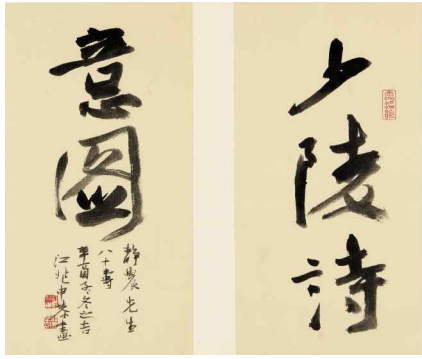 少陵詩
意圖
靜農先生
八十壽
辛酉冬之吉
江兆申恭畫